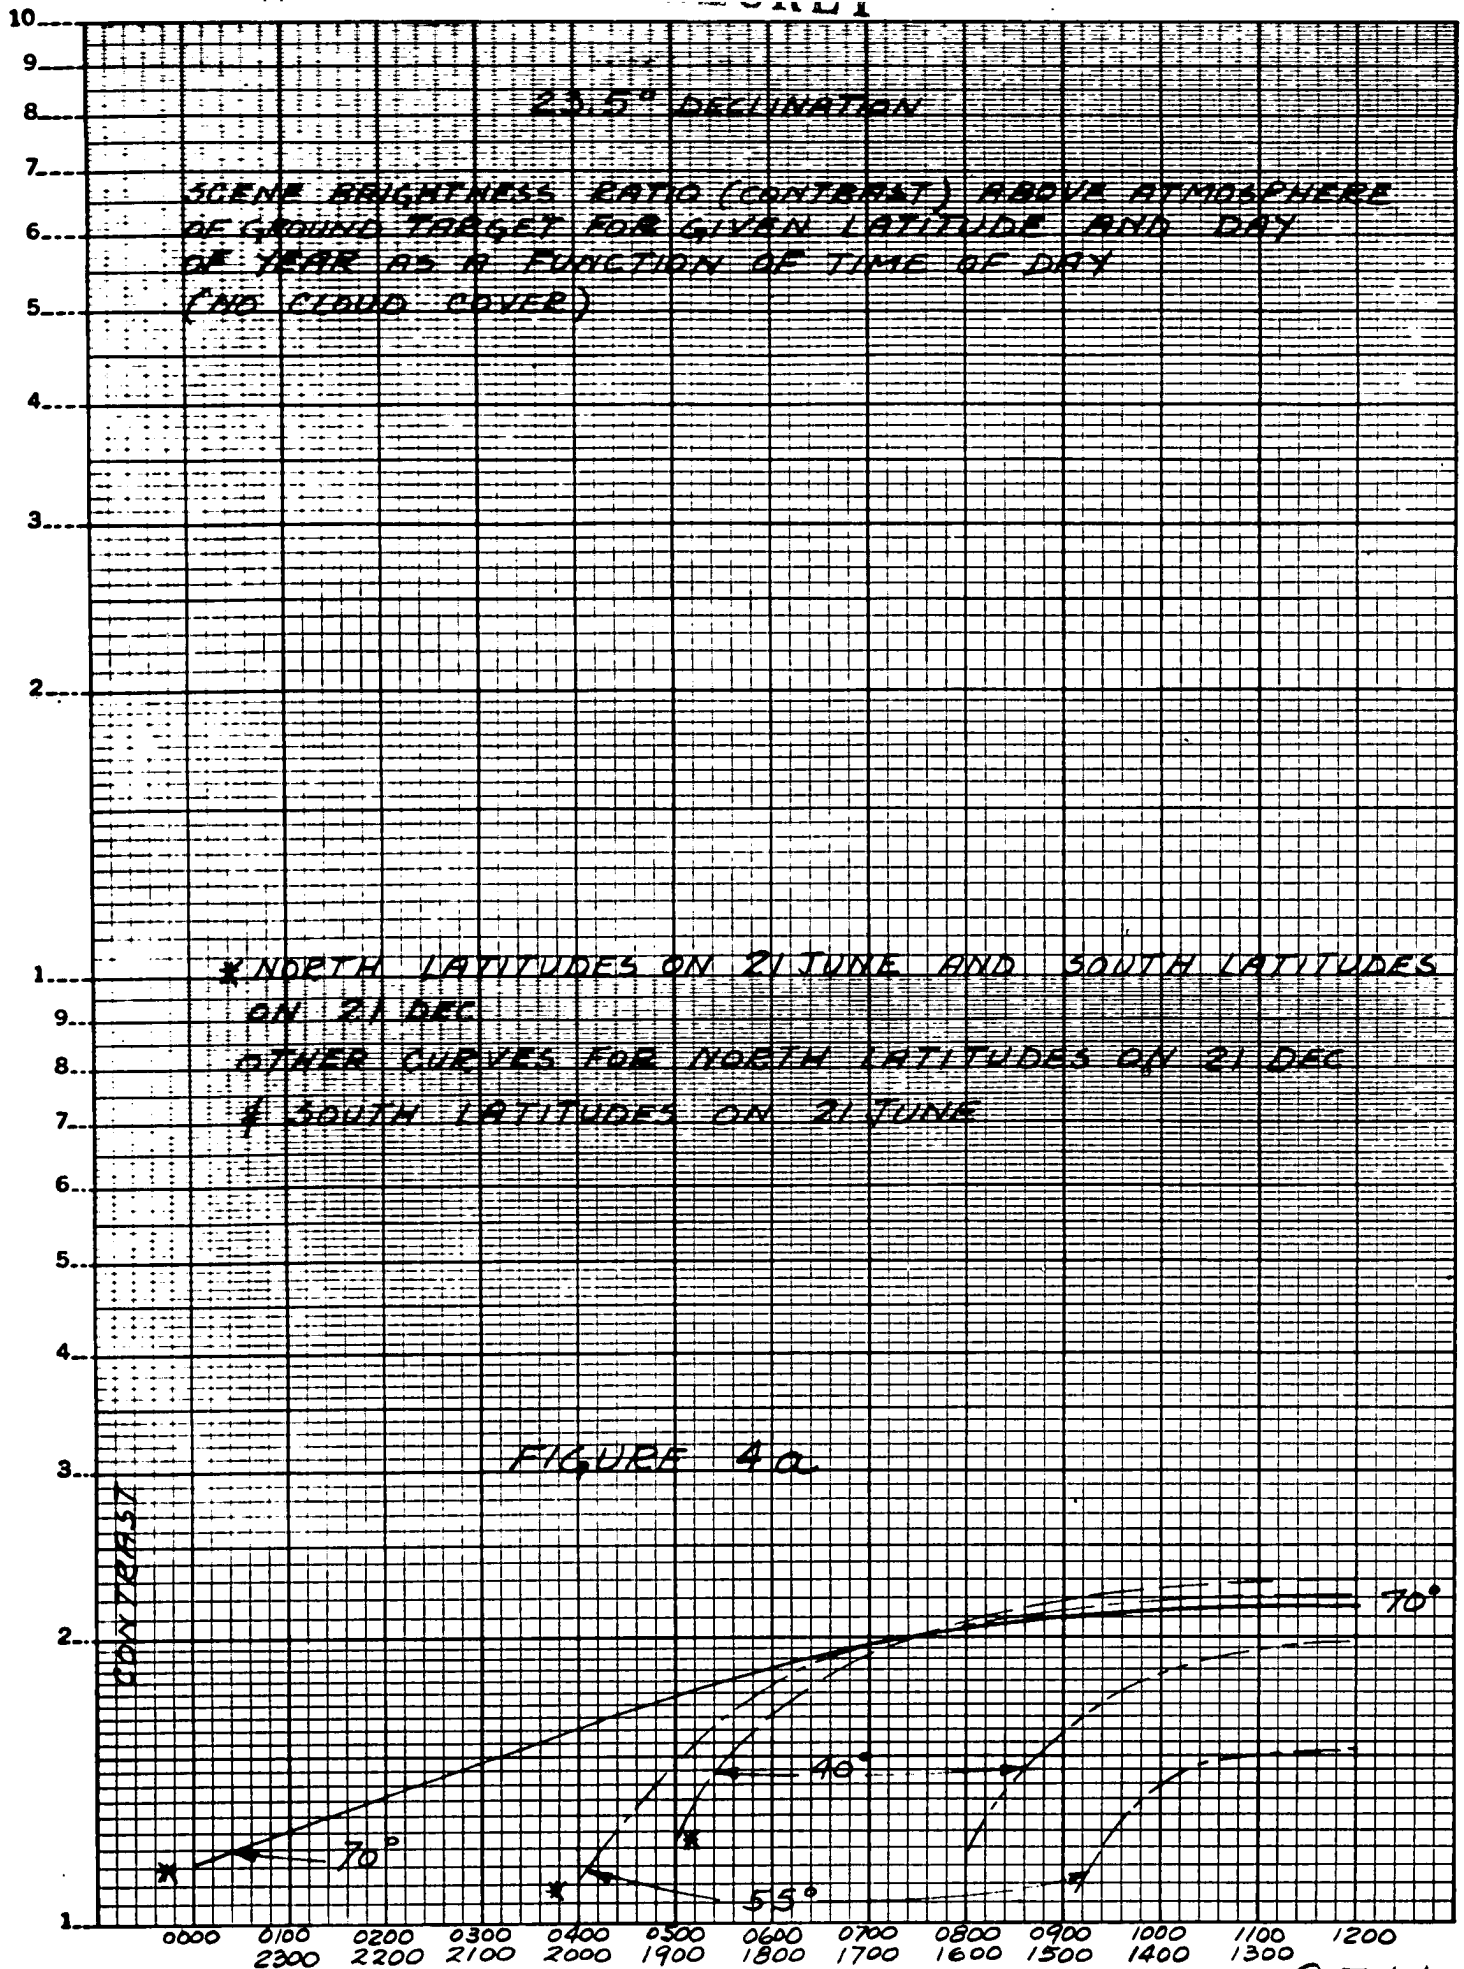 10
9
8
7
6
5
4
3
2
1
9
8
7
6
5
4
3
2
1
23.5° DECLINATION
SCENE BRIGHTNESS RATIO (CONTRAST) ABOVE ATMOSPHERE
OF GROUND TARGET FOR GIVEN LATITUDE AND DAY
OF YEAR AS A FUNCTION OF TIME OF DAY
(NO CLOUD COVER)
* NORTH LATITUDES ON 21 JUNE AND SOUTH LATITUDES
ON 21 DEC
OTHER CURVES FOR NORTH LATITUDES ON 21 DEC
& SOUTH LATITUDES ON 21 JUNE
FIGURE 4a
CONTRAST
70°
40°
* 70° *
* 55°
0000 0100 0200 0300 0400 0500 0600 0700 0800 0900 1000 1100 1200
2300 2200 2100 2000 1900 1800 1700 1600 1500 1400 1300